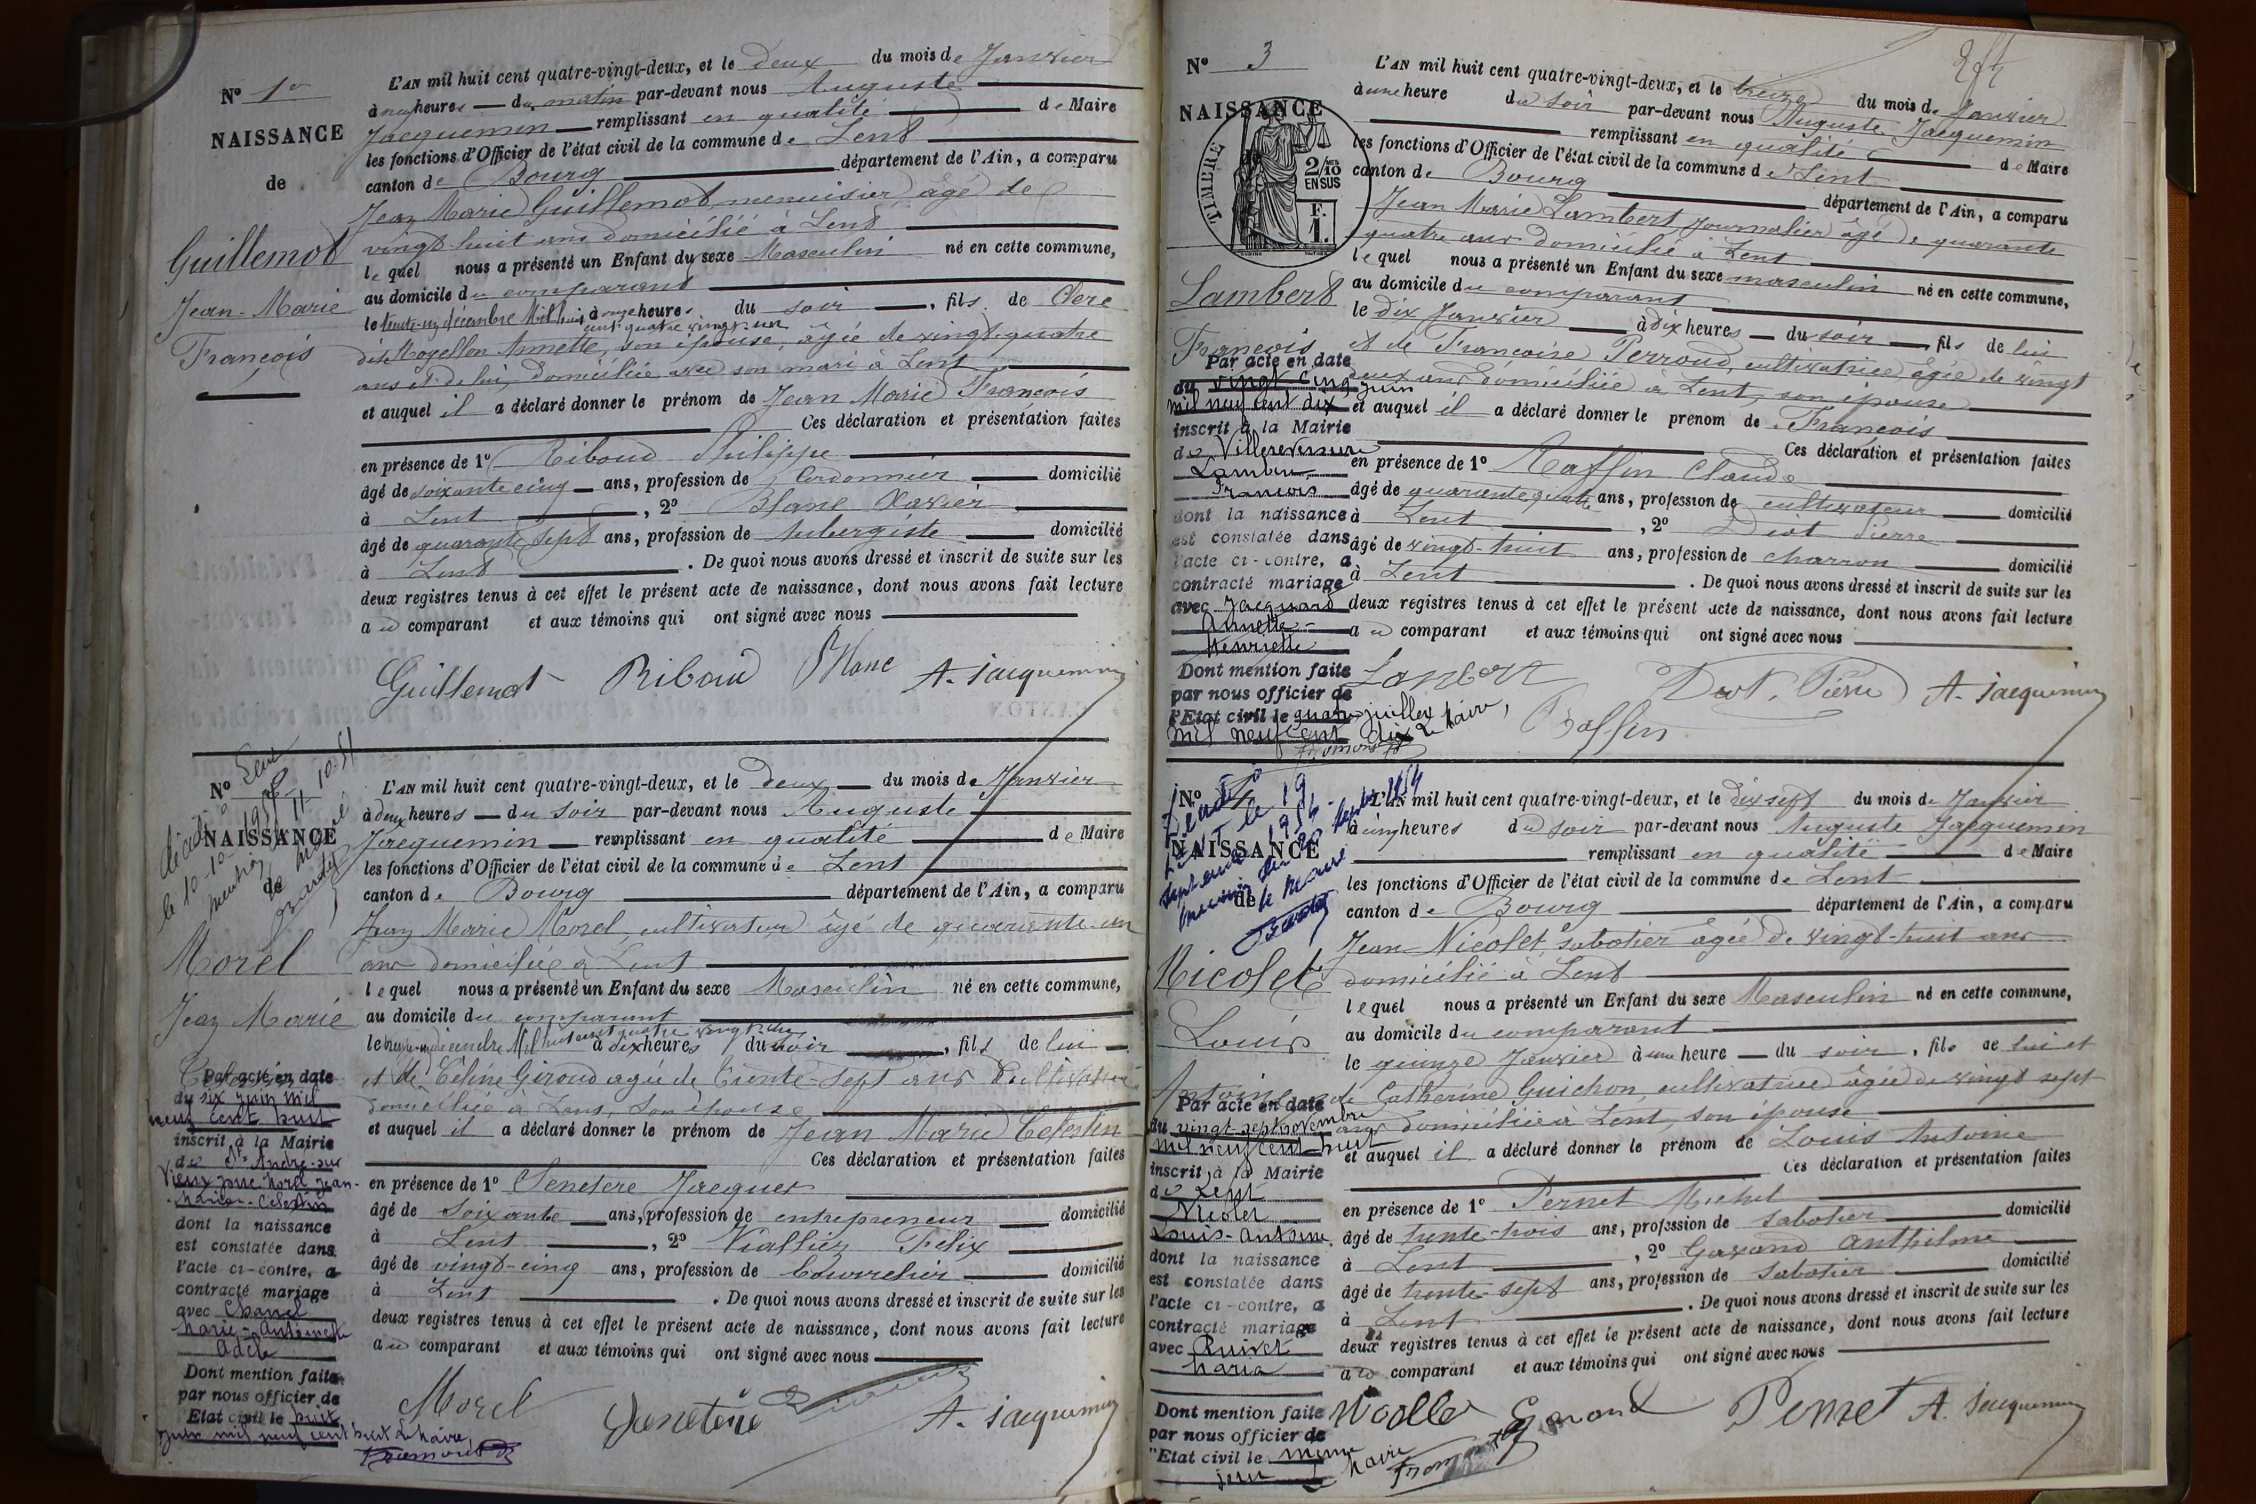 Nº 1er
NAISSANCE
de
Guillemot
Jean-Marie
François
L'AN mil huit cent quatre-vingt-deux, et le deux du mois de Janvier
à neuf heures — du matin par-devant nous Auguste
Jacquemin — remplissant en qualité de Maire
les fonctions d'Officier de l'état civil de la commune de Lent
canton de Bourg département de l'Ain, a comparu
Jean Marie Guillemot, menuisier âgé de
vingt-huit ans domicilié à Lent
lequel nous a présenté un Enfant du sexe Masculin né en cette commune,
au domicile du comparant
le trente-un décembre Mil huit à onze heures du soir, fils de
cent quatre vingt-un
Annette, son épouse, âgée de vingt-quatre
ans et de lui, domiciliée avec son mari à Lent
et auquel il a déclaré donner le prénom de Jean Marie François
Ces déclaration et présentation faites
en présence de 1º Riboud Philippe
âgé de soixante cinq ans, profession de Cordonnier domicilié
à Lent, 2º Blanc Xavier
âgé de quarante sept ans, profession de Aubergiste domicilié
à Lent. De quoi nous avons dressé et inscrit de suite sur les
deux registres tenus à cet effet le présent acte de naissance, dont nous avons fait lecture
au comparant et aux témoins qui ont signé avec nous
Guillemot Riboud Blanc A. Jacquemin
Nº 2
NAISSANCE
de
décédé à Lent
le 10-10-1951
mention 11-10-51
Le Maire
Morel
Jean Marie
Célestin
Par acte en date
du six juin mil
neuf cent huit
inscrit à la Mairie
de St André-sur
Vieux Jonc Morel Jean-
Marie-Célestin
dont la naissance
est constatée dans
l'acte ci-contre, a
contracté mariage
avec Chanel
Marie-Antoinette
Adèle
Dont mention faite
par nous officier de
l'Etat civil le huit
juin mil neuf cent huit Le Maire,
L'AN mil huit cent quatre-vingt-deux, et le deux du mois de Janvier
à deux heures — du soir par-devant nous Auguste
Jacquemin — remplissant en qualité de Maire
les fonctions d'Officier de l'état civil de la commune de Lent
canton de Bourg département de l'Ain, a comparu
Jean Marie Morel, cultivateur âgé de quarante-un
ans domicilié à Lent
lequel nous a présenté un Enfant du sexe Masculin né en cette commune,
au domicile du comparant
le trente-un décembre Mil huit cent quatre vingt-un à dix heures du soir, fils de lui
et de Céline Giroud agée de Trente-sept ans Cultivatrice
domiciliée à Lent, son épouse
et auquel il a déclaré donner le prénom de Jean Marie Célestin
Ces déclaration et présentation faites
en présence de 1º Senetere Jacques
âgé de soixante ans, profession de entrepreneur domicilié
à Lent, 2º Viallier Félix
âgé de vingt-cinq ans, profession de Bourrelier domicilié
à Lent. De quoi nous avons dressé et inscrit de suite sur les
deux registres tenus à cet effet le présent acte de naissance, dont nous avons fait lecture
au comparant et aux témoins qui ont signé avec nous
Morel Senetère A. Jacquemin
Nº 3
NAISSANCE
de
TIMBRE
2/10
EN SUS
F.
1.
Lambert
François
Par acte en date
du vingt cinq juin
mil neuf cent dix
inscrit à la Mairie
de Villereversure
Lambert
François
dont la naissance
est constatée dans
l'acte ci-contre, a
contracté mariage
avec Jacquard
Annette-
Henriette
Dont mention faite
par nous officier de
l'Etat civil le quatre juillet
mil neuf cent dix Le Maire,
L'AN mil huit cent quatre-vingt-deux, et le treize du mois de Janvier
à une heure du soir par-devant nous Auguste Jacquemin
remplissant en qualité de Maire
les fonctions d'Officier de l'état civil de la commune de Lent
canton de Bourg département de l'Ain, a comparu
Jean Marie Lambert, Journalier âgé de quarante
quatre ans domicilié à Lent
lequel nous a présenté un Enfant du sexe masculin né en cette commune,
au domicile du comparant
le dix Janvier à dix heures — du soir, fils de lui
et de Françoise Perroud, cultivatrice âgée de vingt
deux ans domiciliée à Lent, son épouse
et auquel il a déclaré donner le prénom de François
Ces déclaration et présentation faites
en présence de 1º Raffin Claude
âgé de quarante quatre ans, profession de cultivateur domicilié
à Lent, 2º Diot Pierre
âgé de vingt-huit ans, profession de charron domicilié
à Lent. De quoi nous avons dressé et inscrit de suite sur les
deux registres tenus à cet effet le présent acte de naissance, dont nous avons fait lecture
au comparant et aux témoins qui ont signé avec nous
Lambert Diot Pierre A. Jacquemin
Raffin
Nº 4
NAISSANCE
de
Décédé à
Lent le 19
septembre 1954
le Maire
Nicolet
Louis
Antoine
Par acte en date
du vingt-sept novembre
mil neuf cent huit
inscrit à la Mairie
de Lent
Nicolet
Louis-Antoine
dont la naissance
est constatée dans
l'acte ci-contre, a
contracté mariage
avec Quivet
Maria
Dont mention faite
par nous officier de
l'Etat civil le même
jour Le Maire
L'AN mil huit cent quatre-vingt-deux, et le dix sept du mois de Janvier
à cinq heures du soir par-devant nous Auguste Jacquemin
remplissant en qualité de Maire
les fonctions d'Officier de l'état civil de la commune de Lent
canton de Bourg département de l'Ain, a comparu
Jean Nicolet, sabotier âgée de vingt-huit ans
domicilié à Lent
lequel nous a présenté un Enfant du sexe Masculin né en cette commune,
au domicile du comparant
le quinze Janvier à une heure — du soir, fils de lui et
de Catherine Guichon, cultivatrice âgée de vingt sept
ans domiciliée à Lent, son épouse
et auquel il a déclaré donner le prénom de Louis Antoine
Ces déclaration et présentation faites
en présence de 1º Pernet Michel
âgé de trente-trois ans, profession de sabotier domicilié
à Lent, 2º Gavand Anthelme
âgé de trente-sept ans, profession de sabotier domicilié
à Lent. De quoi nous avons dressé et inscrit de suite sur les
deux registres tenus à cet effet le présent acte de naissance, dont nous avons fait lecture
au comparant et aux témoins qui ont signé avec nous
Gavand Pernet A. Jacquemin